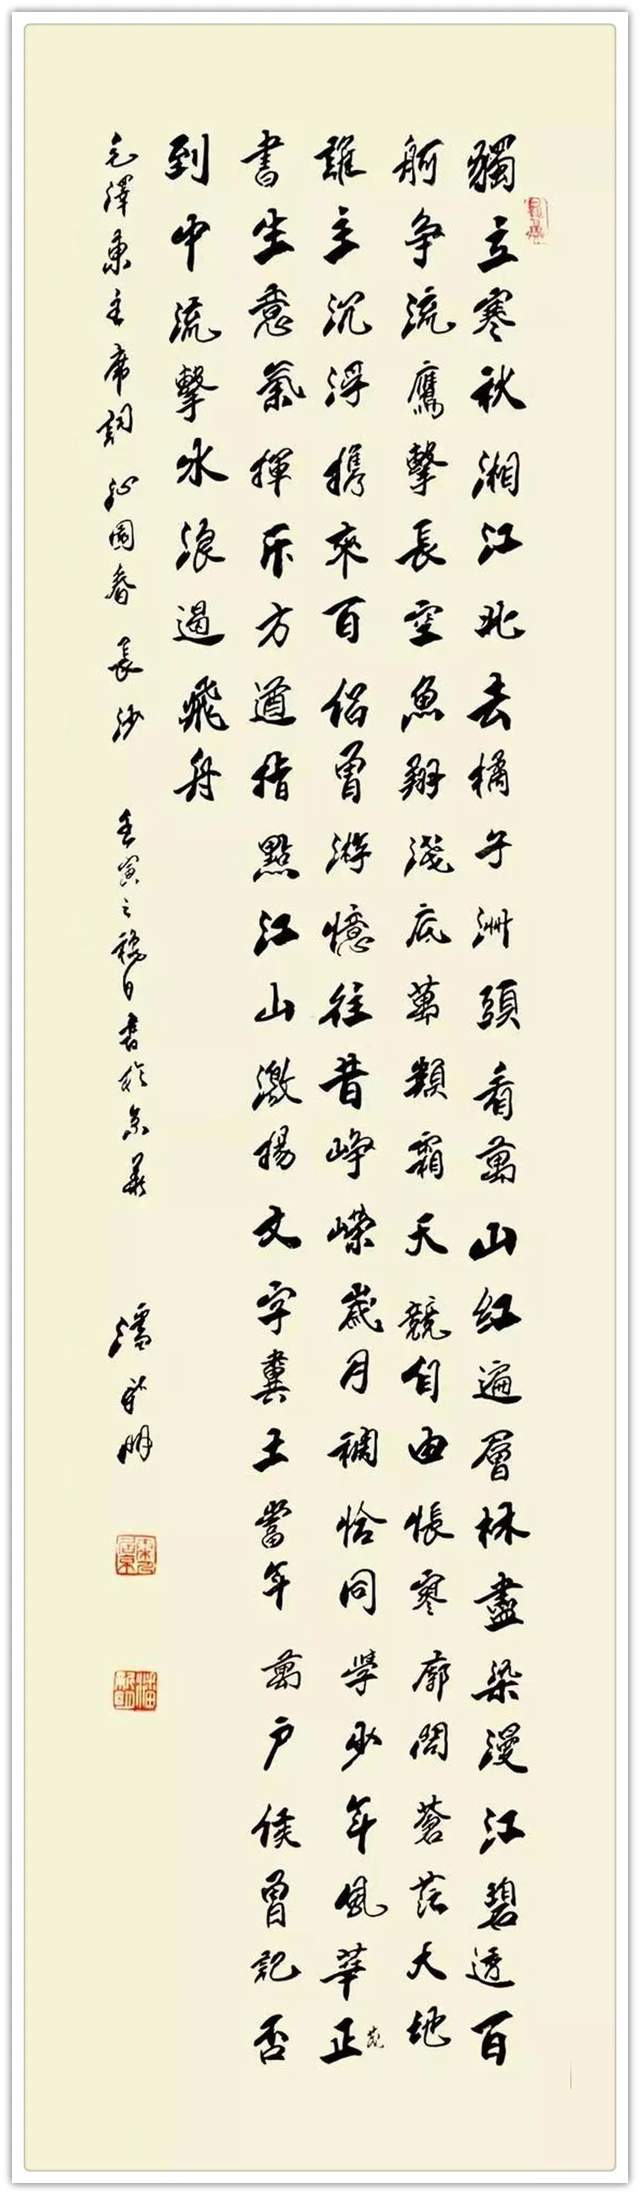 獨立寒秋湘江北去橘子洲頭看萬山紅遍層林盡染漫江碧透百
舸争流鷹擊長空魚翔淺底萬類霜天競自由悵寥廓問蒼茫大地
誰主沉浮携來百侣曾游憶往昔崢嶸歲月稠恰同學少年風華正茂
書生意氣揮斥方遒指點江山激揚文字糞土當年萬户侯曾記否
到中流擊水浪遏飛舟
毛澤東主席詞沁園春長沙 壬寅之穐日書於京華